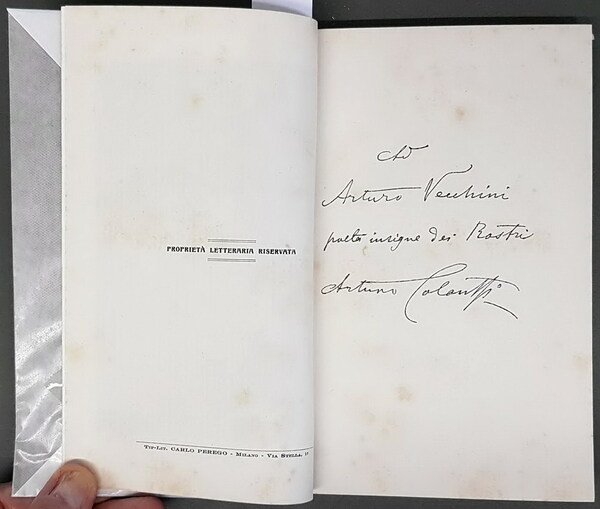 PROPRIETÀ LETTERARIA RISERVATA
TIP-LIT. CARLO PEREGO - MILANO - VIA STELLA,
Ad
Arturo Vecchini
poeta insigne dei Rostri
Arturo Colautti